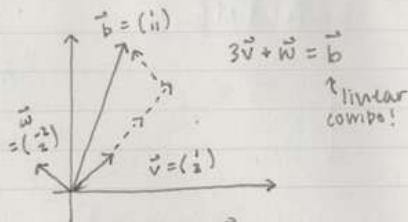 b⃗ = (1 11)
3v⃗ + w⃗ = b⃗
↑ linear
combo!
w⃗
= (-2 2)
v⃗ = (1 3)